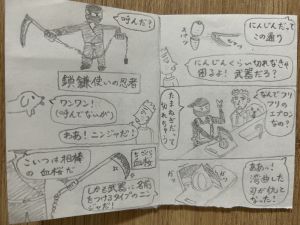 呼んだ?
鎖鎌使いの忍者
ワンワン!
(呼んでないが)
ああ!ニンジャだ!
こいつは相棒
の血桜だ
ちざくら
血桜
しかも武器に名前
をつけるタイプのニン
ジャだ!
にんじんだって
この通り
スパッ
にんじんくらい切れなきゃ
困るよ!武器だろ?
たまねぎだって
切れちゃう
なんでフリ
フリの
エプロン
なの?
ああっ!
溶油した
刃が仇と
なった!